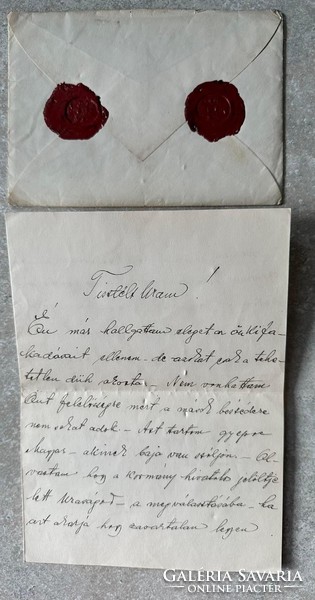 Tisztelt Uram!
Én már hallgattam eleget a önkifa-
kadásait ellenem - de azokat csak a tehe-
tetlen düh okozta - Nem vonhattam
Önt felelősségre mert a mások beszédére
nem sokat adok - Azt tartom gyepre
Magyar - akinek baja van jöjjön - Ol-
vastam hogy a kormány hivatalos jelöltje
lett Uraságod - a megválasztásába - ha
azt akarja hogy zavartalan legyen
GALÉRIA SAVARIA
ONLINE PIACTÉR